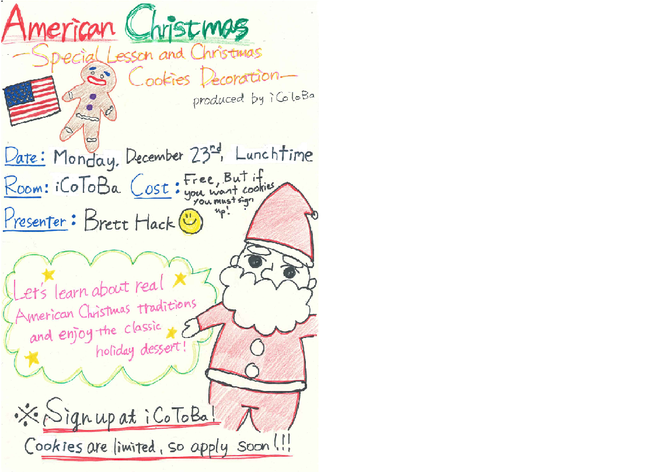 American Christmas
-Special Lesson and Christmas
Cookies Decoration-
produced by iCoToBa
Date: Monday, December 23rd, Lunchtime
Room: iCoToBa Cost: Free, But if
you want cookies
you must sign
up!
Presenter: Brett Hack
Let's learn about real
American Christmas traditions
and enjoy the classic
holiday dessert!
※Sign up at iCoToBa!
Cookies are limited, so apply soon!!!